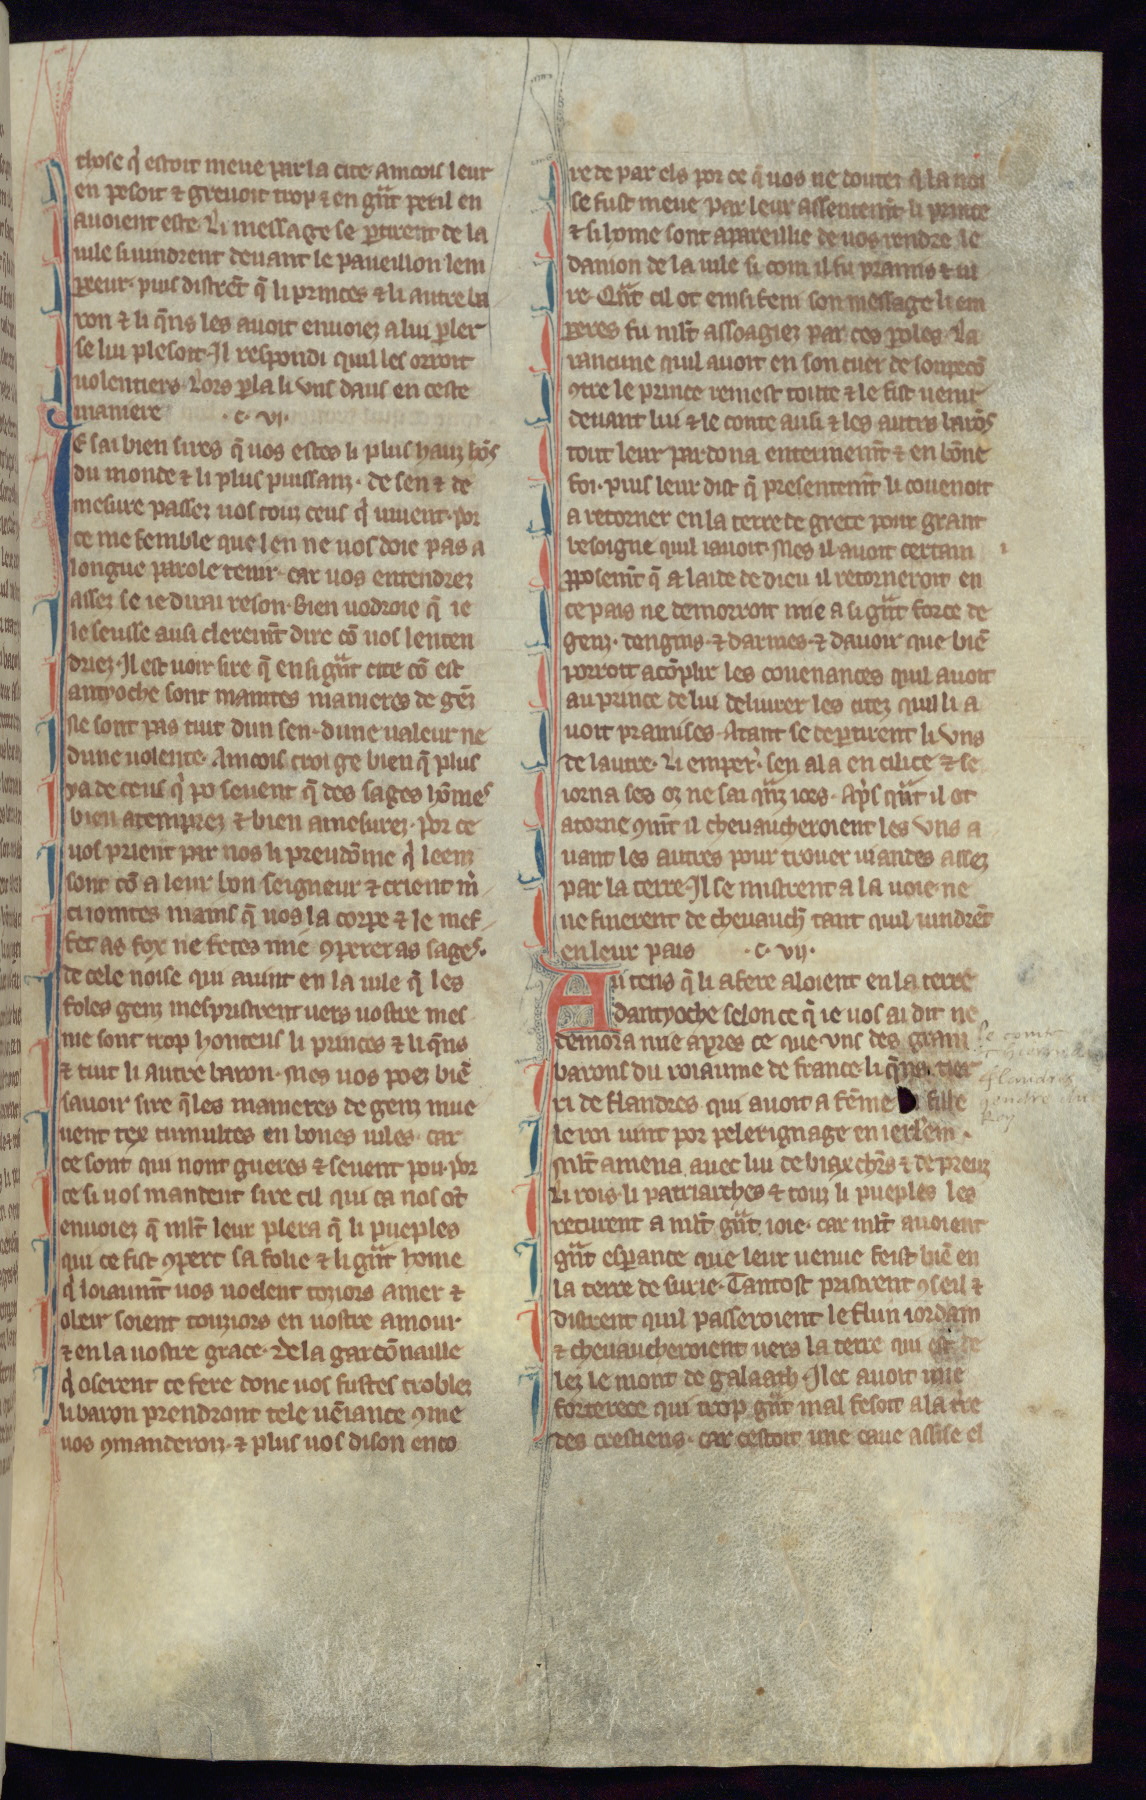 chose q̍ estoit meue par la cite aincois leur
en pesoit ⁊ greuoit trop ⁊ en gͣnt peril en
auoient este. Li message se ꝑtirent de la
uile si uindrent deuant le paueillon lem
ꝑeeur. puis distrēt q̄ li princes ⁊ li autre ba
ron ⁊ li q̄ns les auoit enuoiez a lui ꝑler
se lui plesoit. Il respondi quil les orroit
uolentiers. Lors ꝑla li uns daus en ceste
maniere .c. vi.
Je sai bien sires q̄ uos estes li plus hauz hōs
du monde ⁊ li plus puissanz. de sen ⁊ de
mesure passez uos touz ceus q̍ uiuent. por
ce me semble que len ne uos doie pas a
longue parole tenir. car uos entendrez
assez se ie dirai reson. Bien uodroie q̄ ie
le seusse ausi cleremēt dire cō uos lenten
driez. Il est uoir sire q̄ en si gͣnt cite cō est
antyoche sont maintes manieres de gēz
Ne sont pas tuit dun sen. dune ualeur ne
dune uolente. Aincois croi ge bien q̄ plus
ya de ceus q̍ po seuent q̄ des sages hōmes
bien atemprez ⁊ bien amesurez. por ce
uos prient par nos li preudōme q̍ leenz
sont cō a leur bon seigneur ⁊ crient m̍
ci iointes mains q̄ uos la corpe ⁊ le mef
fet as fox ne fetes mie ꝯperer as sages.
de cele noise qui auint en la uile q̄ les
foles genz mespristrent uers uostre mes
nie sont trop honteus li princes ⁊ li q̄ns
⁊ tuit li autre baron. Mes uos poez biē
sauoir sire q̄ les manieres de genz mue
uent tex tumultes en bones uiles. car
ce sont qui nont gueres ⁊ seuent pou. por
ce si uos mandent sire cil qui ca nos ōt
enuoiez q̄ mlt̄ leur plera q̄ li pueples
qui ce fist ꝯpert sa folie ⁊ li gͣnt home
q̍ loiaumēt uos uoelent touziors amer ⁊
oleir soient touziors en uostre amour
⁊ en la uostre grace. De la garcōnaille
q̍ oserent ce fere donc uos fustes troblez
li baron prendront tele uēiance ꝯme
uos ꝯmanderoiz. ⁊ plus uos dison enco
re de par els por ce q̄ uos ne doutez q̄ la noi
se fust meue par leur assentemēt. li prince
⁊ si home sont apareillie de uos rendre le
danion de la uile si com il fu pramis ⁊ iu
re. Qͣnt cil ot einsi feni son message li em
ꝑeres fu mlt̄ assoagiez par ces ꝑoles. La
rancune quil auoit en son cuer de soupecō
ꝯtre le prince remest toute ⁊ le fist uenir
deuant lui ⁊ le conte ausi ⁊ les autres barōs
tout leur pardona enterinemēt ⁊ en bōne
foi. puis leur dist q̄ presentemēt li couenoit
a retorner en la terre de grece pour grant
besoigne quil i auoit. Mes il auoit certain
ꝓposemēt q̄ a laide de dieu il retorneroit en
ce pais ne demorroit mie a si gͣnt force de
genz. dengins. ⁊ darmes. ⁊ dauoir que biē
porroit acōplir les couenances quil auoit
au prince de lui deliurer les citez quil li a
uoit pramises. Atant se deꝑtirent li uns
de lautre. Li emper̍. sen ala en cilice ⁊ se
iorna ses oz ne sai qͣnz iors. Ap̍s qͣnt il ot
atorne ꝯmēt il cheuaucheroient les uns a
uant les autres pour trouer uiandes assez
par la terre. Il se mistrent a la uoie. ne
ne finerent de cheuauch̄ tant quil uindrēt
en leur pais .c. vij.
Au tens q̄ li afere aloient en la terre
dantyoche selon ce q̄ ie uos ai dit ne
demora mie apres ce que uns des granz
barons du roiaume de france li q̄ns tier
ri de flandres. qui auoit a fēme fille
le roi uint por pelerignage en ierlem̄.
Mlt̄ amena auec lui de biax chrs̄ ⁊ de preuz
Li rois. li patriarches ⁊ touz li pueples les
recurent a mlt̄ gͣnt ioie. car mlt̄ auoient
gͣnt esꝑance que leur uenue feist biē en
la terre de surie. Tantost pristrent ꝯseil ⁊
distrent quil passeroient le flun iordain
⁊ cheuaucheroient uers la terre qui est de
lez le mont de galaath. Ilec auoit une
forterece qui trop gͣnt mal fesoit a la tr̄e
des crestiens. car cestoit une caue assise el
le comte
flandres
gendre du
Roy